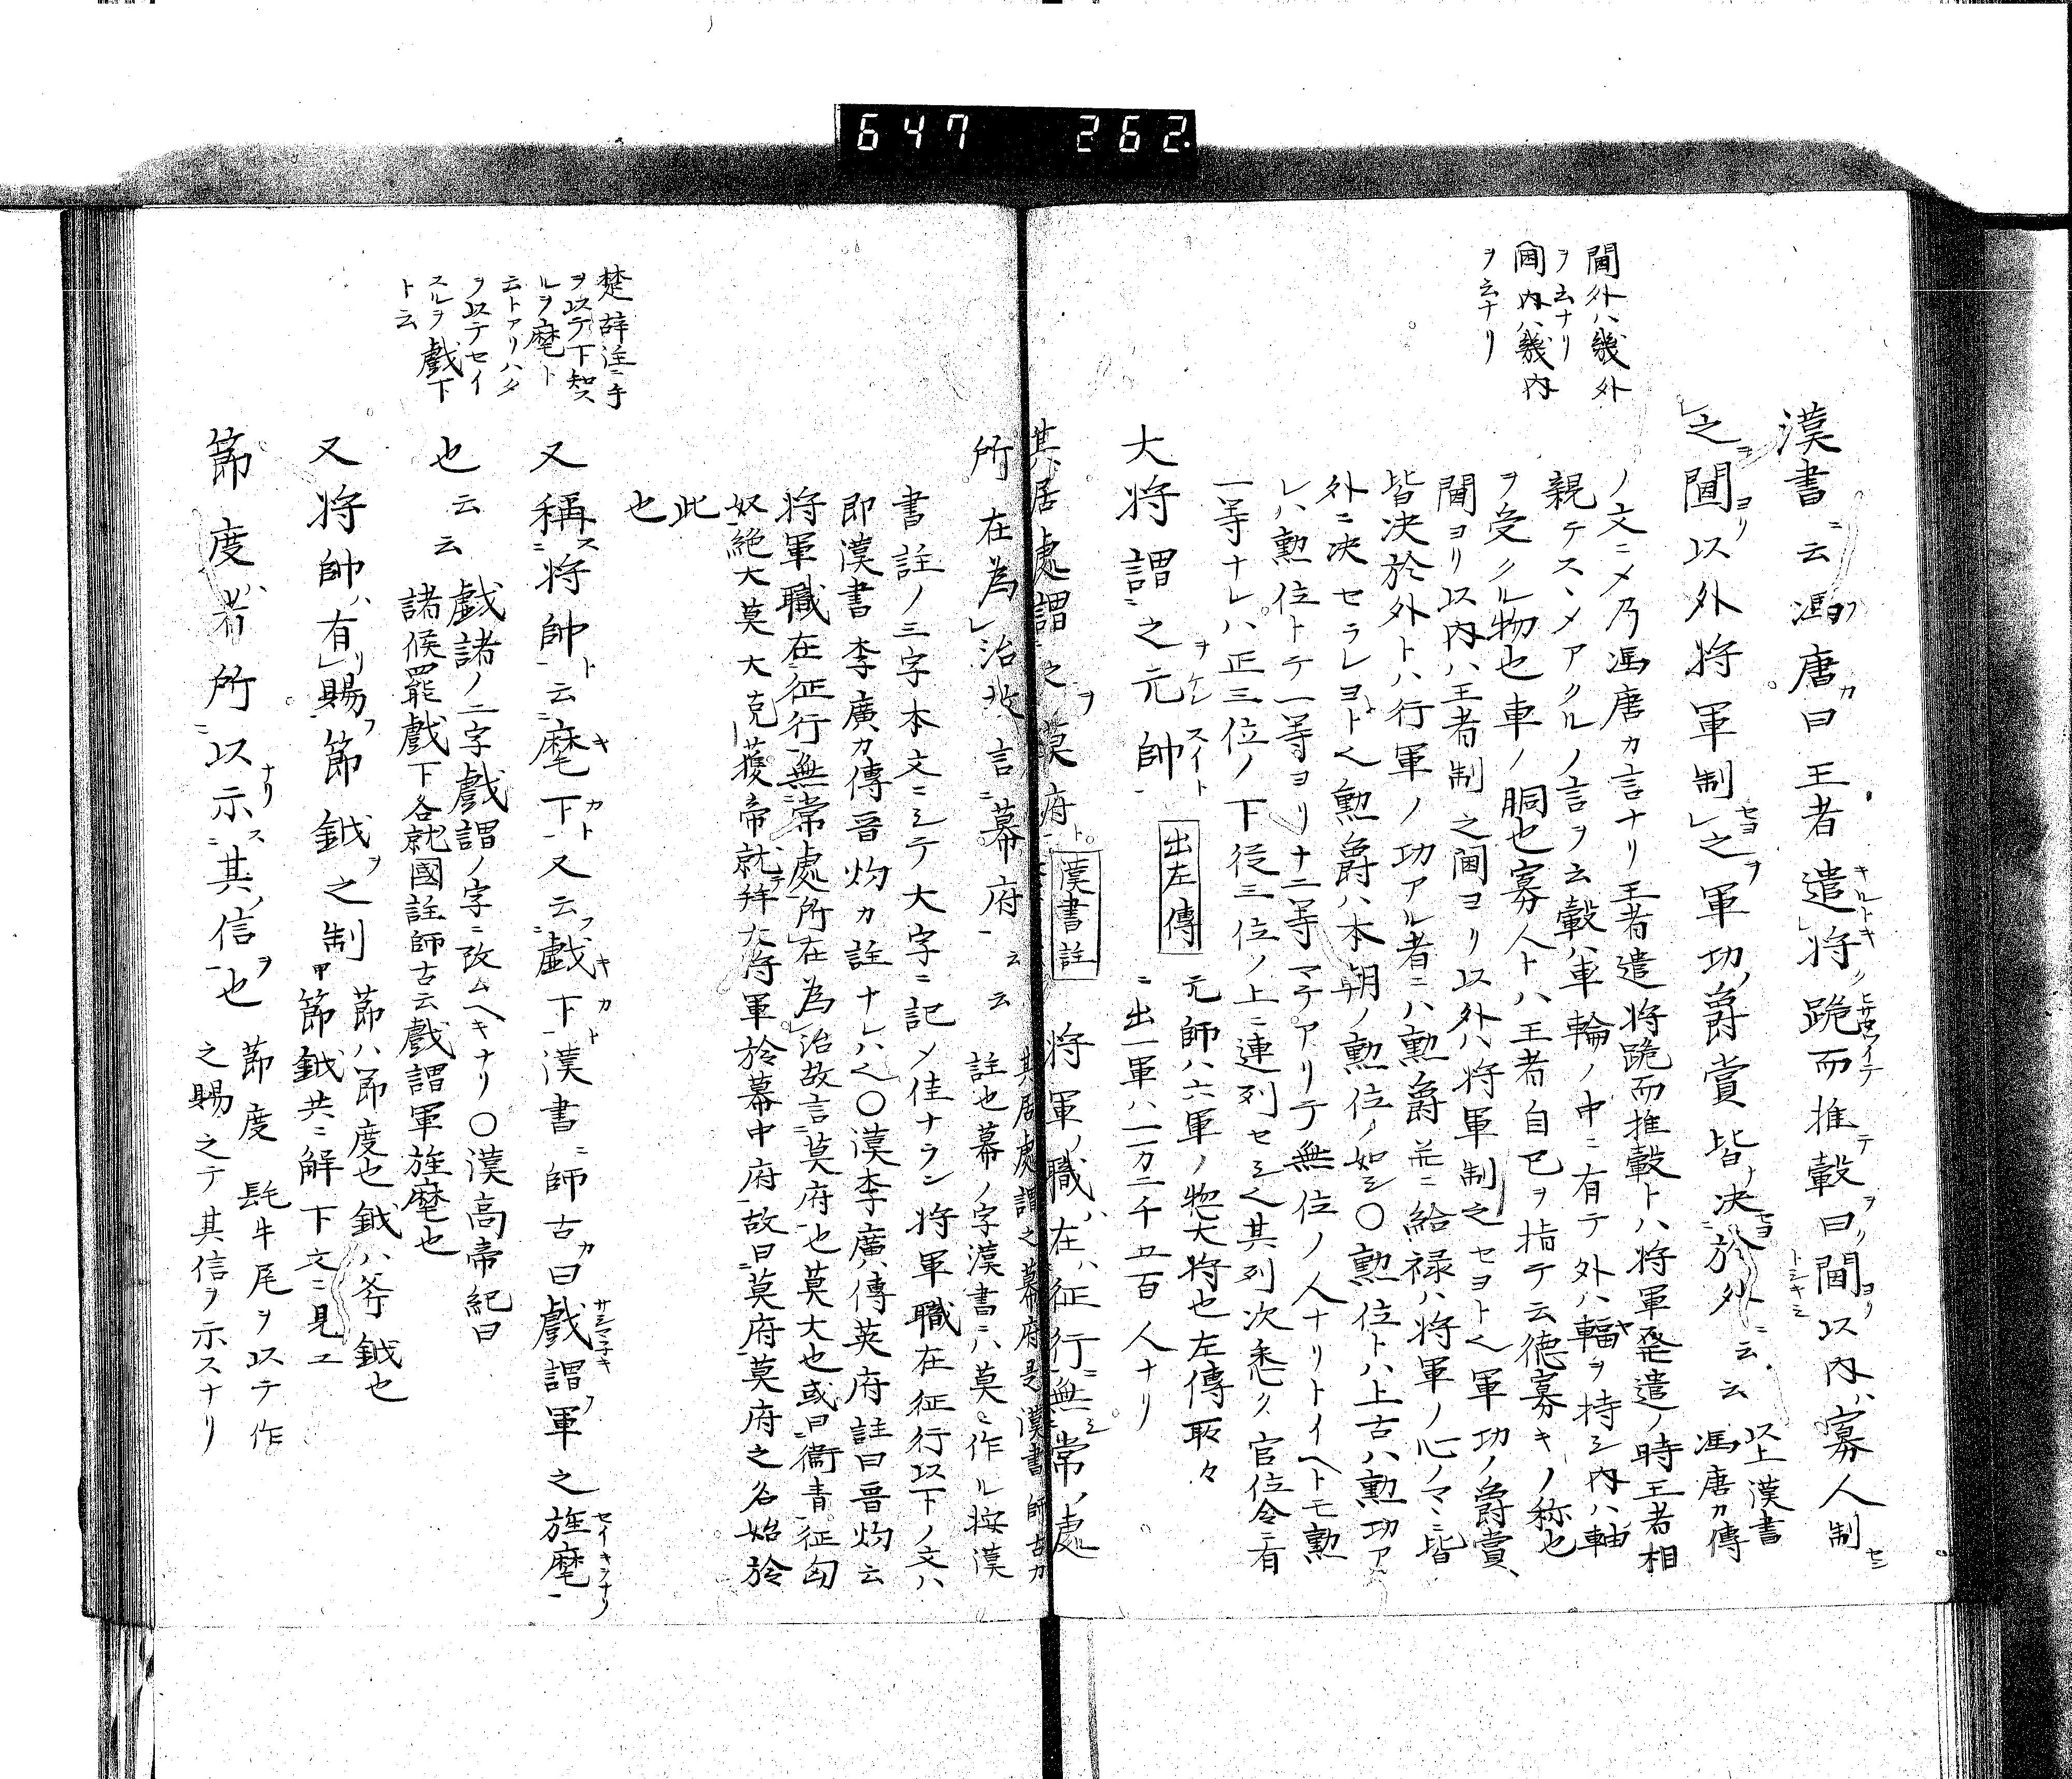 647 262
閫外ハ畿外
ヲ云ナリ
閫内ハ畿内
ヲ云ナリ
漢書ニ云馮唐カ曰王者遣将跪而推轂曰閫以内ハ寡人制
之閫以外将軍制之軍功爵賞皆决於外云云以上漢書
馮唐カ傳
ノ文ニメ乃馮唐カ言ナリ王者遣将跪而推轂トハ将軍発遣ノ時王者相
親テスヽメアクルノ言ヲ云轂ハ車輪ノ中ニ有テ外ハ輻ヲ持シ内ハ軸
ヲ受クル物也車ノ胴也寡人トハ王者自已ヲ指テ云德寡キノ称也
閫ヨリ以内ハ王者制之閫ヨリ以外ハ将軍制之セヨト也軍功ノ爵賞、
皆决於外トハ行軍ノ功アル者ニハ勲爵並ニ給禄ハ将軍ノ心ノマヽニ皆
外ニ决セラレヨト也勲爵ハ本朝ノ勲位ノ如シ〇勲位トハ上古ハ勲功ア
レハ勲位トテ一等ヨリ十二等マテアリテ無位ノ人ナリトイヘトモ勲
一等ナレハ正三位ノ下従三位ノ上ニ連列セシ也其列次悉ク官位令ニ有
大将謂之元帥 出左傳 元師ハ六軍ノ惣大将也左傳取々
ニ出一軍ハ一万二千五百人ナリ
其居處謂之莫府 漢書註 将軍ノ職在征行無常ノ處
所在為治故言幕府云云 其居處謂之幕府是漢書師古カ
註也幕ノ字漢書ニハ莫ニ作ル按漢
書註ノ三字本文ニシテ大字ニ記メ佳ナラン将軍職在征行以下ノ文ハ
即漢書李廣カ傳晋灼カ註ナレハ也〇漢李廣ハ傳英府註曰晋灼云
将軍職在征行無常處所在為治故言莫府也莫大也或曰衞青征匈
奴絶大莫大克獲帝就拜大将軍於幕中府故曰莫府莫府之名始於
此
也
楚辞注ニ手
ヲ以テ下知ス
ルヲ麾ト
云トアリハタ
ヲ以テセイ
スルヲ戯下
ト云
又稱将帥云麾下又云戯下漢書ニ師古カ曰戯謂軍之旌麾
也云云 戯諸ノ二字戯謂ノ字ニ改ムヘキナリ〇漢高帝紀曰
諸候罷戯下各就國註師古云戯謂軍旌麾也
又将帥有賜節鉞之制 節ハ節度也鉞ハ斧鉞也
節鉞共ニ解下文ニ見エ
節度者所以示其信也 節度髦牛尾ヲ以テ作
之賜之テ其信ヲ示スナリ